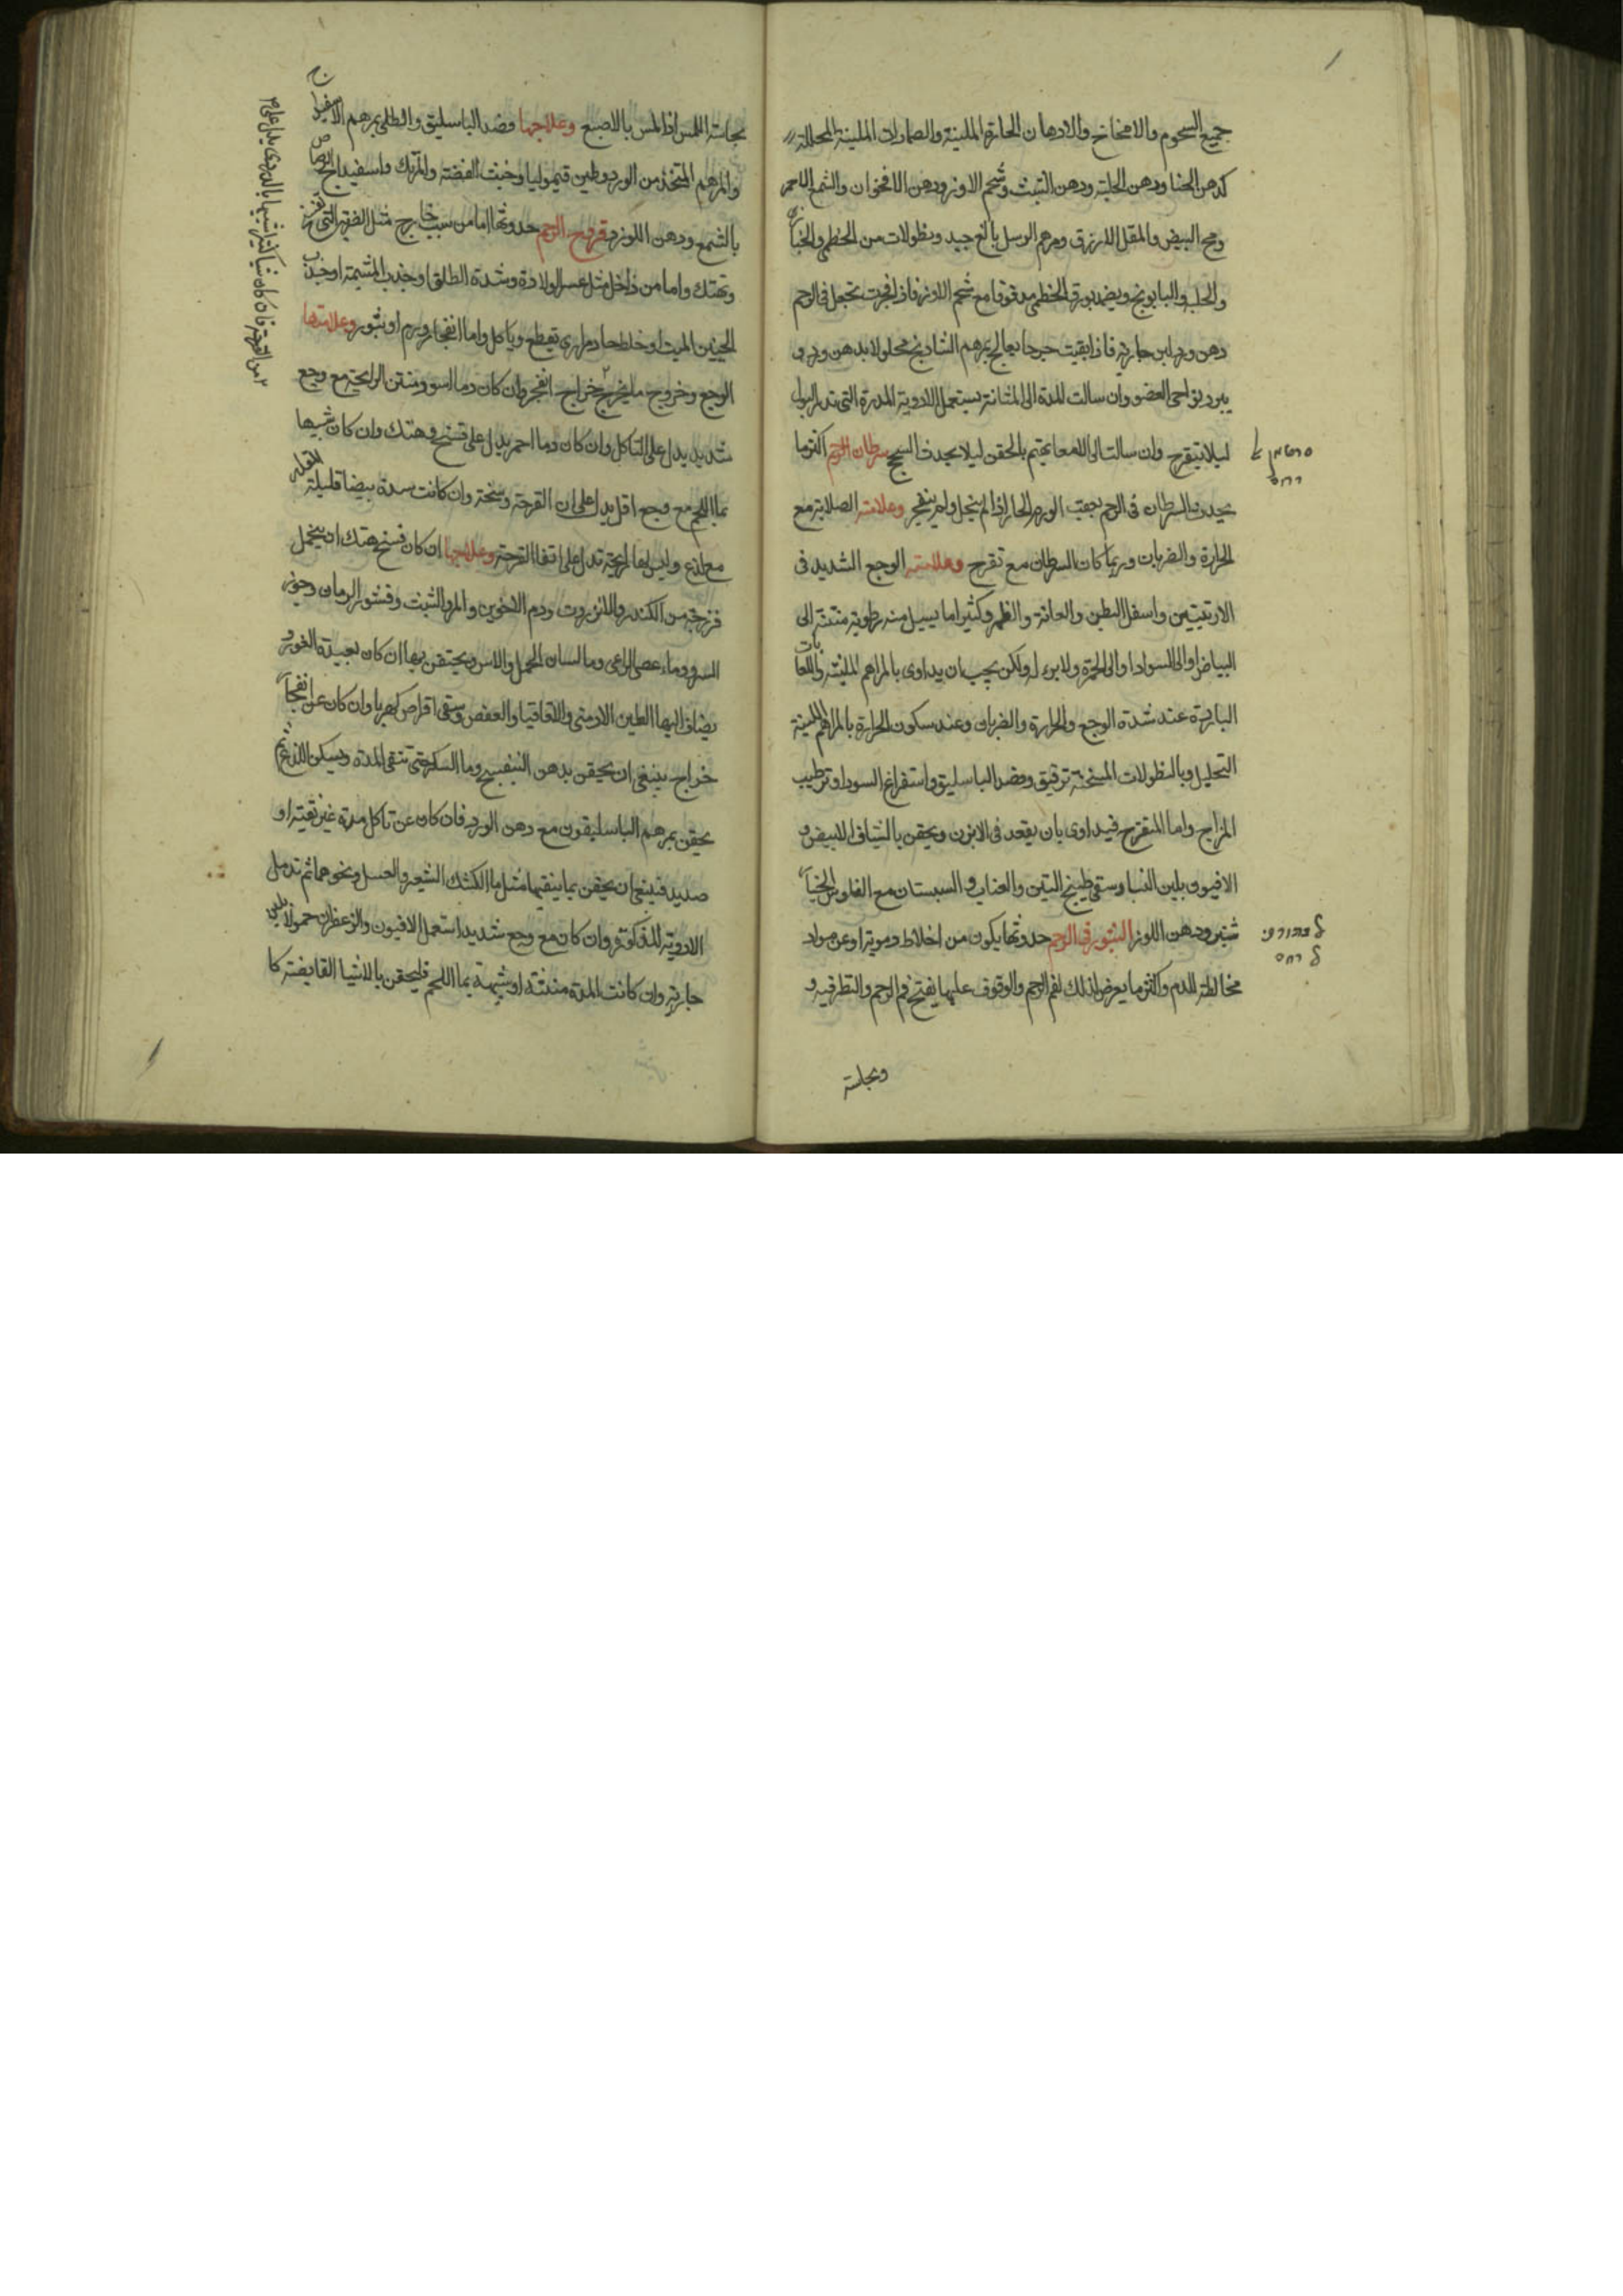 جميع الشحوم والامخاخ والادهان الحارة الملينة والضمادات الملينة المحللة
كدهن الحنا ودهن الحلبة ودهن الشبث وشحم الاوز ودهن الاقحوان والشمع الاحمر
ومح البيض والمقل الازرق ومرهم الرسل بالغ جيد ونطولات من الخطمى والخبازى
والحلبة والبابونج ويضمد بورق الخطمى مدقوقا مع شحم الاوز فاذا انفجرت تجعل فى الرحم
دهن ورد لبن جارية فاذا بقيت حرجا يعالج بمرهم الشادنج محلولا بدهن ورد
يبرد نواحى العضو وان سالت المدة الى المثانة يستعمل الادوية المدرة التى تدر البول
ليلا يتقرح وان سالت الى المعا يهتم بالحقن ليلا يحدث السحج سرطان الرحم اكثر ما
يحدث السرطان فى الرحم بعقب الورم الحار اذا لم ينحل ولم ينفجر وعلامته الصلابة مع
الحرارة والضربان وربما كان السرطان مع تقرح وعلامته الوجع الشديد فى
الاربيتين واسفل البطن والعانة والظهر وكثيرا ما يسيل منه رطوبة منتنة الى
البياض او الى السواد او الى الحمرة ولا برء له ولكن يجب ان يداوى بالمراهم الملينة واللعابات
الباردة عند شدة الوجع والحرارة والضربان وعند سكون الحرارة بالمراهم الملينة
التحليل وبالنطولات المسخنة ترقيق وفصد الباسليق واستفراغ السودا وترطيب
المزاج واما المتقرح فيداوى بان يقعد فى الابزن ويحقن بالشياف الابيض و
الافيون بلبن النسا وسقى طبيخ التين والعناب و السبستان مع الفلوس الخيار
شنبر ودهن اللوز البثور فى الرحم حدوثها يكون من اخلاط دموية او عن مواد
مخالطة للدم واكثر ما يعرض لذلك لفم الرحم والوقوف عليها بفتح فم الرحم والنظر فيه و
وبجاسة
بجاسة اللمس اذا لمس بالاصبع وعلاجها فصد الباسليق والطلى بمرهم الاسفيداج
والمرهم المتخذ من الورد وطين قيموليا وخبث الفضة والمرتك واسفيداج الرصاص
بالشمع ودهن اللوز قروح الرحم حدوثها اما من سبب خارج مثل الضربة التى
وتهتك واما من داخل مثل عسر الولادة وشدة الطلق او جذب المشيمة او جذب
الجنين الميت او خلط حاد مرارى يقطع وياكل واما انفجار ورم او بثور وعلامتها
الوجع وخروج ما يخرج بخراج انفجر وان كان دما اسود ومنتن الرايحة مع وجع
شديد يدل على التاكل وان كان دما احمر يدل على فسخ وهتك وان كان شبيها
بما اللحم مع وجع اقل يدل على ان القرحة وسخة وان كانت مدة بيضا قليلة
مع لذع وليس لها رايحة تدل على نقا القرحة وعلاجها ان كان فسخ وهتك ان يتحمل
فرزجة من الكندر والانزروت ودم الاخوين والمر والشبث وقشور الرمان وجوز
السرو وماء عصى الراعى وما لسان الحمل والاس ويحتقن بها ان كان بعيدة الغور و
يضاف اليها الطين الارمنى والاقاقيا والعفص وسقى اقراص كهربا وان كان عن انفجار
خراج ينبغى ان يحقن بدهن البنفسج وما السكر حتى تنقى المدة ويسكن اللذع ثم
يحقن بمرهم الباسليقون مع دهن الورد فان كان عن تاكل مدة غير نقية او
صديد فينبغى ان يحقن بما ينقيها مثل ما الكشك الشعير والعسل ونحوهما ثم تدمل
الادوية المذكورة وان كان مع وجع شديد استعمل الافيون والزعفران حمولا بلبن
جارية وان كانت المدة منتنة او شبيهة بما اللحم فليحقن بالاشيا القابضة كا